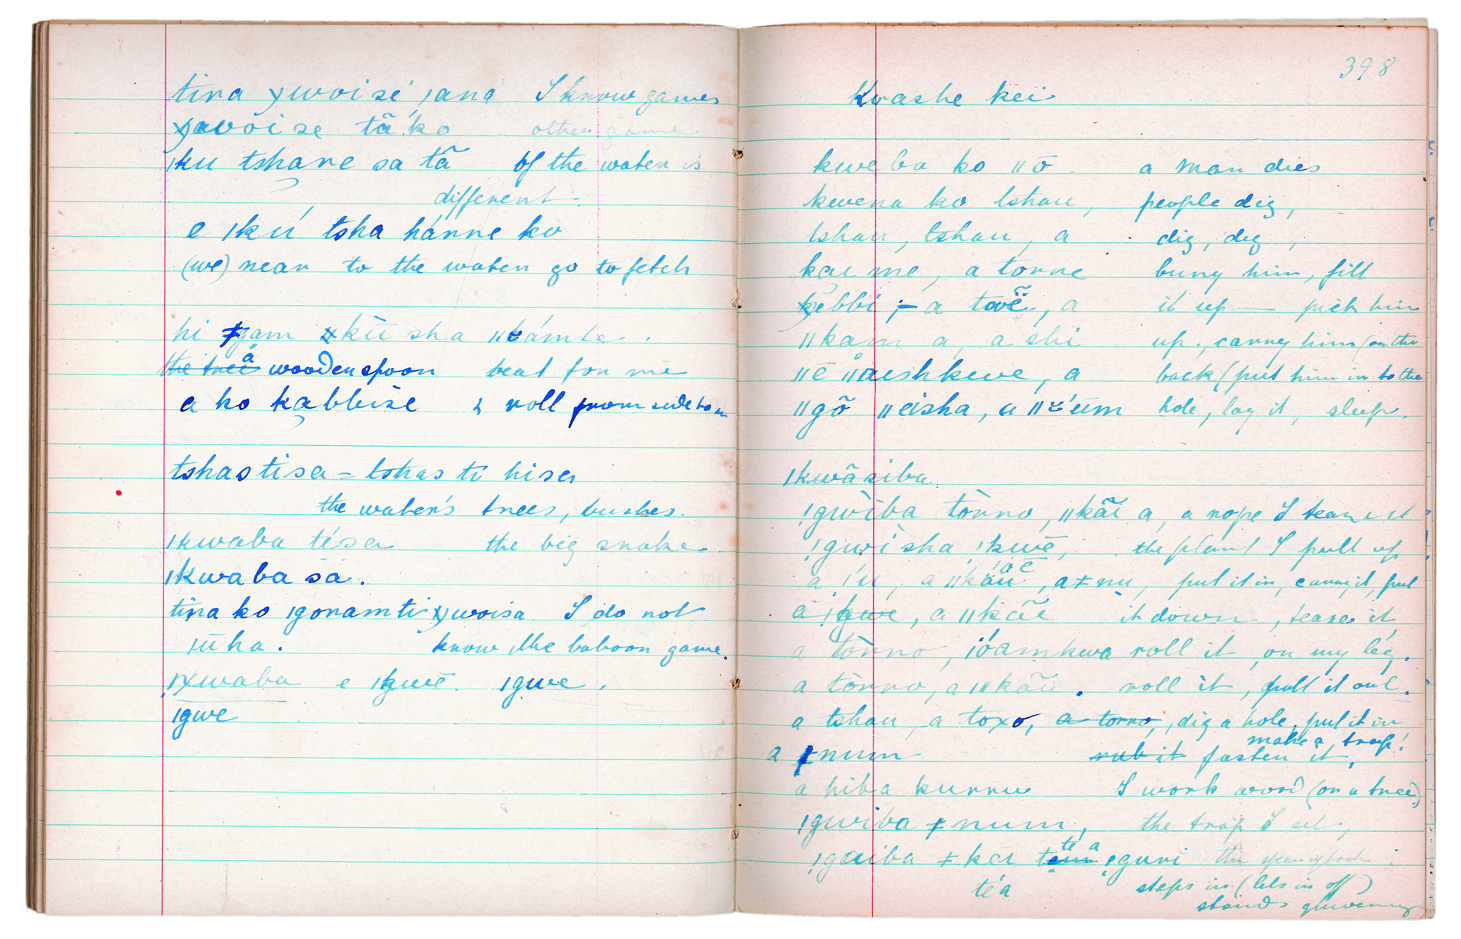 tina ӽwoisé, ǀana I know games
ӽavõise tã ko other game
ǀku tshane sa tã of the water is
different -
e ǀkú tsha hánne ko
(we) near to the water go to fetch
hi ǂgam ӽkū sha ǁkámte .
the tree á wooden spoon beat for me
a ho kabbise & roll from side to
tshastisa = tshas ti hisa
the water's trees, bushes.
ǀkwaba tésa the big snake
ǀkwaba sa.
tina ko ǀgonamti ӽwoisa I do not
ǀūha. know the baboon game.
ǀӽwaba e ǀkgwē. ǀgwe.
ǀgwe
398
Kwashe kei
kweba ko ǁō a man dies
kwena ko tshau, people dig,
tshau, tshau, a dig, dig,
kai mé, a tonne bury him, fill
kebbi, – a toõe, a it up — pick him
ǁkam a, a shi up, carry him (on the
ǁē ǁaishkwe, a back (put him in to the
ǁgõ ǁeisha, a ǁ'úm hole, lay it, sleep.
ǀkwãsiba
ǃgwìba tòrno, ǁkãi a, a rope I tease it
ǃgwìsha ǃkwē, the plant I pull up
a ǀú, a ǁkáu oē, a ǂnu, put it in, carry it, put
a ǃgwe, a ǁkãe it down, tease it
a tòrno, ǀóamkwa roll it, on my leg.
a tòrno, a ǁkãū. roll it, pull it out.
a tshau, a toxo, a torno, dig a hole, put it in
make a trap!
a ǂnum rub it fasten it,
a hiba kurru I work wood (on a tree)
ǃgwiba ǂnum, the trap I set,
te a
ǃgaiba ǂkei tam ǃguni the
téa steps in (lets in off)
stands